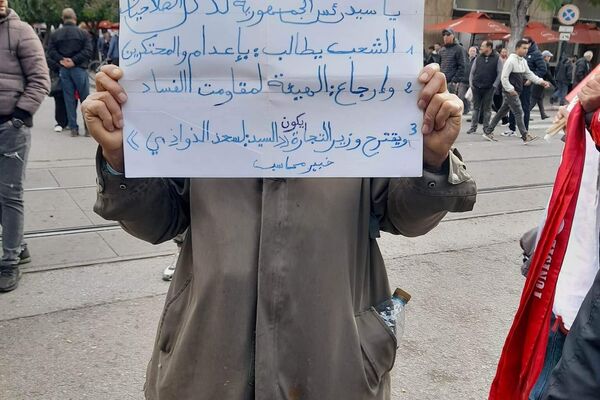 يا سيد رئيس الجمهورية لك كل الصلاحيات
1 الشعب يطالب : بإعدام والمحتكرين
2 وإرجاع : الهيئة لمقاومت الفساد
3 ويقترح وزير التجارة يكون السيد : لسعد الذوادي »
خبير محاسب
TUNISIE